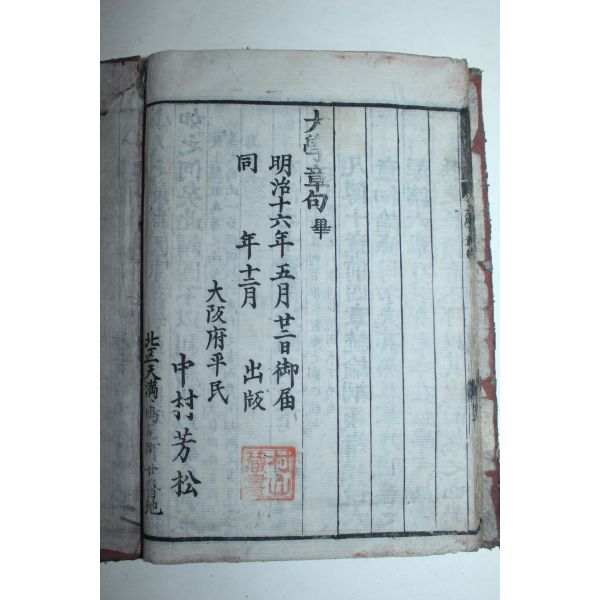 大學章句 畢
明治十六年五月廿二日御届
同 年十二月 出版
大阪府平民
中村芳松
北區天満
番地